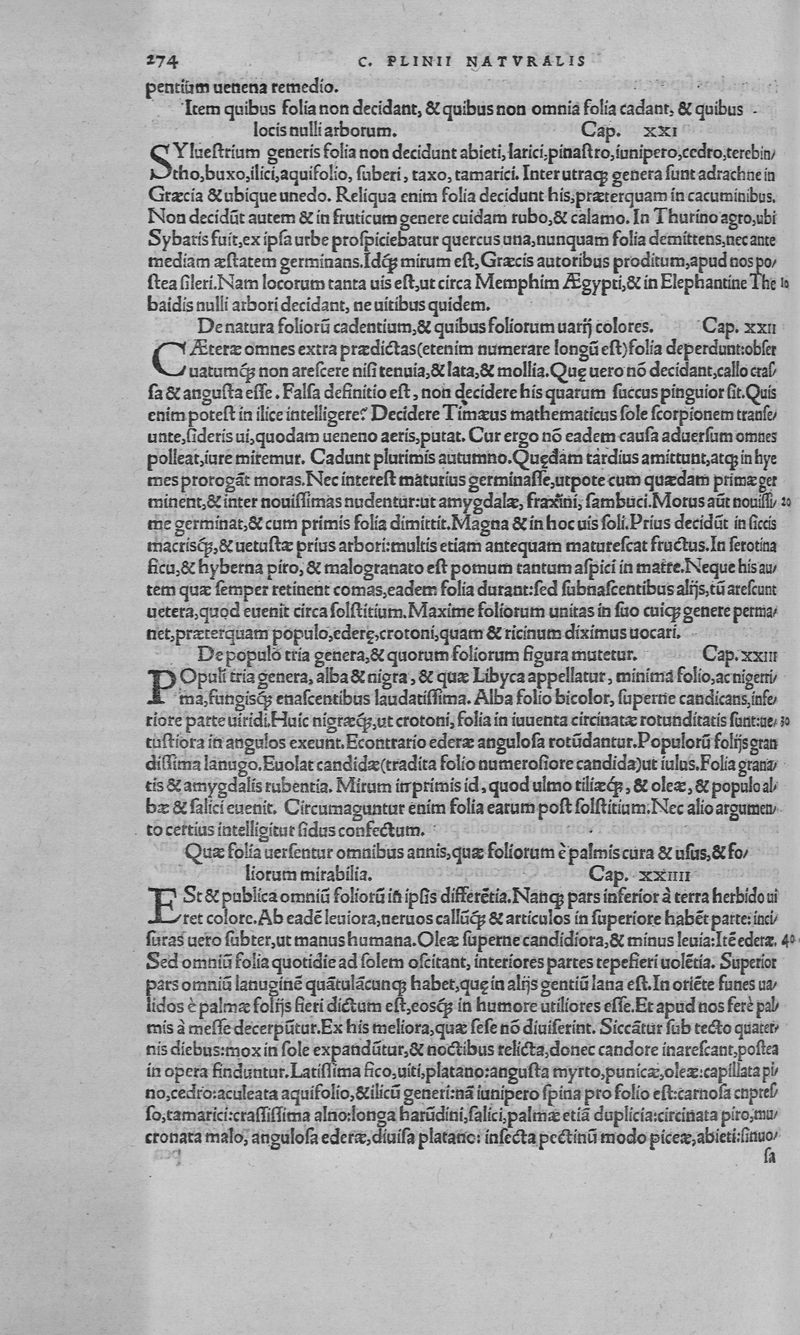 274 C. PLINII NATVRALIS
pentiũm uenena remedio.
Item quibus folia non decidant, & quibus non omnia folia cadant, & quibus
locis nulli arborum. Cap. XXI
SYlueſtrium generis folia non decidunt abieti, larici, pinaſtro, iunipero, cedro, terebin/
tho, buxo, ilici, aquifolio, ſuberi, taxo, tamarici. Inter utraq; genera ſunt adrachne in
Græcia & ubique unedo. Reliqua enim folia decidunt his, præterquam in cacuminibus.
Non decidũt autem & in fruticum genere cuidam rubo, & calamo. In Thurino agro, ubi
Sybaris fuit, ex ipſa urbe proſpiciebatur quercus una, nunquam folia demittens, nec ante
mediam æſtatem germinans. Idq; mirum eſt, Græcis autoribus proditum, apud nos po/
ſtea ſileri. Nam locorum tanta uis eſt, ut circa Memphim Ægypti, & in Elephantine The 10
baidis nulli arbori decidant, ne uitibus quidem.
De natura foliorũ cadentium, & quibus foliorum uarij colores. Cap. XXII
CÆteræ omnes extra prædictas (etenim numerare longũ eſt) folia deperdunt: obſer
uatumq; non areſcere niſi tenuia, & lata, & mollia. Quę uero nõ decidant, callo craſ/
ſa & anguſta eſſe. Falſa definitio eſt, non decidere his quarum ſuccus pinguior ſit. Quis
enim poteſt in ilice intelligere? Decidere Timæus mathematicus ſole ſcorpionem tranſe/
unte, ſideris ui, quodam ueneno aeris, putat. Cur ergo nõ eadem cauſa aduerſum omnes
polleat, iure miremur. Cadunt plurimis autumno. Quędam tardius amittunt, atq; in hye
mes prorogãt moras. Nec intereſt maturius germinaſſe, utpote cum quædam primæ ger
minent, & inter nouiſſimas nudentur: ut amygdalæ, fraxini, ſambuci. Morus aũt nouiſſi/ 20
me germinat, & cum primis folia dimittit. Magna & in hoc uis ſoli. Prius decidũt in ſiccis
macrisq;, & uetuſtæ prius arbori: multis etiam antequam matureſcat fructus. In ſerotina
ficu, & hyberna piro, & malogranato eſt pomum tantum aſpici in matre. Neque his au/
tem quæ ſemper retinent comas, eadem folia durant: ſed ſubnaſcentibus alijs, tũ areſcunt
uetera, quod euenit circa ſolſtitium. Maxime foliorum unitas in ſuo cuiq; genere perma/
net, præterquam populo, ederę, crotoni, quam & ricinum diximus uocari.
De populo tria genera, & quorum foliorum figura mutetur. Cap. XXIII
POpuli tria genera, alba & nigra, & quæ Libyca appellatur, minima folio, ac nigerri/
ma, fungisq; enaſcentibus laudatiſſima. Alba folio bicolor, ſuperne candicans, infe/
riore parte uiridi. Huic nigræq;, ut crotoni, folia in iuuenta circinatæ rotunditatis ſunt: ue/ 30
tuſtiora in angulos exeunt. Econtrario ederæ anguloſa rotũdantur. Populorũ folijs gran
diſſima lanugo. Euolat candidæ (tradita folio numeroſiore candida) ut iulus. Folia grana/
tis & amygdalis rubentia. Mirum in primis id, quod ulmo tiliæq;, & oleæ, & populo al/
bæ & ſalici euenit. Circumaguntur enim folia earum poſt ſolſtitium. Nec alio argumen/
to certius intelligitur ſidus confectum.
Quæ folia uerſentur omnibus annis, quæ foliorum è palmis cura & uſus, & fo/
liorum mirabilia. Cap. XXIIII
ESt & publica omniũ foliorũ in ipſis differẽtia. Nanq; pars inferior à terra herbido ui
ret colore. Ab eadẽ leuiora, neruos callũq; & articulos in ſuperiore habẽt parte: inci/
ſuras uero ſubter, ut manus humana. Oleæ ſuperne candidiora, & minus leuia: Itẽ ederæ. 40
Sed omniũ folia quotidie ad ſolem oſcitant, interiores partes tepefieri uolẽtia. Superior
pars omniũ lanuginẽ quãtulãcunq; habet, quę in alijs gentiũ lana eſt. In oriẽte funes ua/
lidos è palmæ folijs fieri dictum eſt, eosq; in humore utiliores eſſe. Et apud nos ferè pal/
mis à meſſe decerpũtur. Ex his meliora, quæ ſeſe nõ diuiſerint. Siccãtur ſub tecto quater/
nis diebus: mox in ſole expandũtur, & noctibus relicta, donec candore inareſcant, poſtea
in opera finduntur. Latiſſima fico, uiti, platano: anguſta myrto, punicæ, oleæ: capillata pi/
no, cedro: aculeata aquifolio, & ilicũ generi: nã iunipero ſpina pro folio eſt: carnoſa cupreſ/
ſo, tamarici: craſſiſſima alno: longa harũdini, ſalici, palmæ etiã duplicia: circinata piro, mu/
cronata malo, anguloſa ederæ, diuiſa platano: inſecta pectinũ modo piceæ, abieti: ſinuo/
ſa